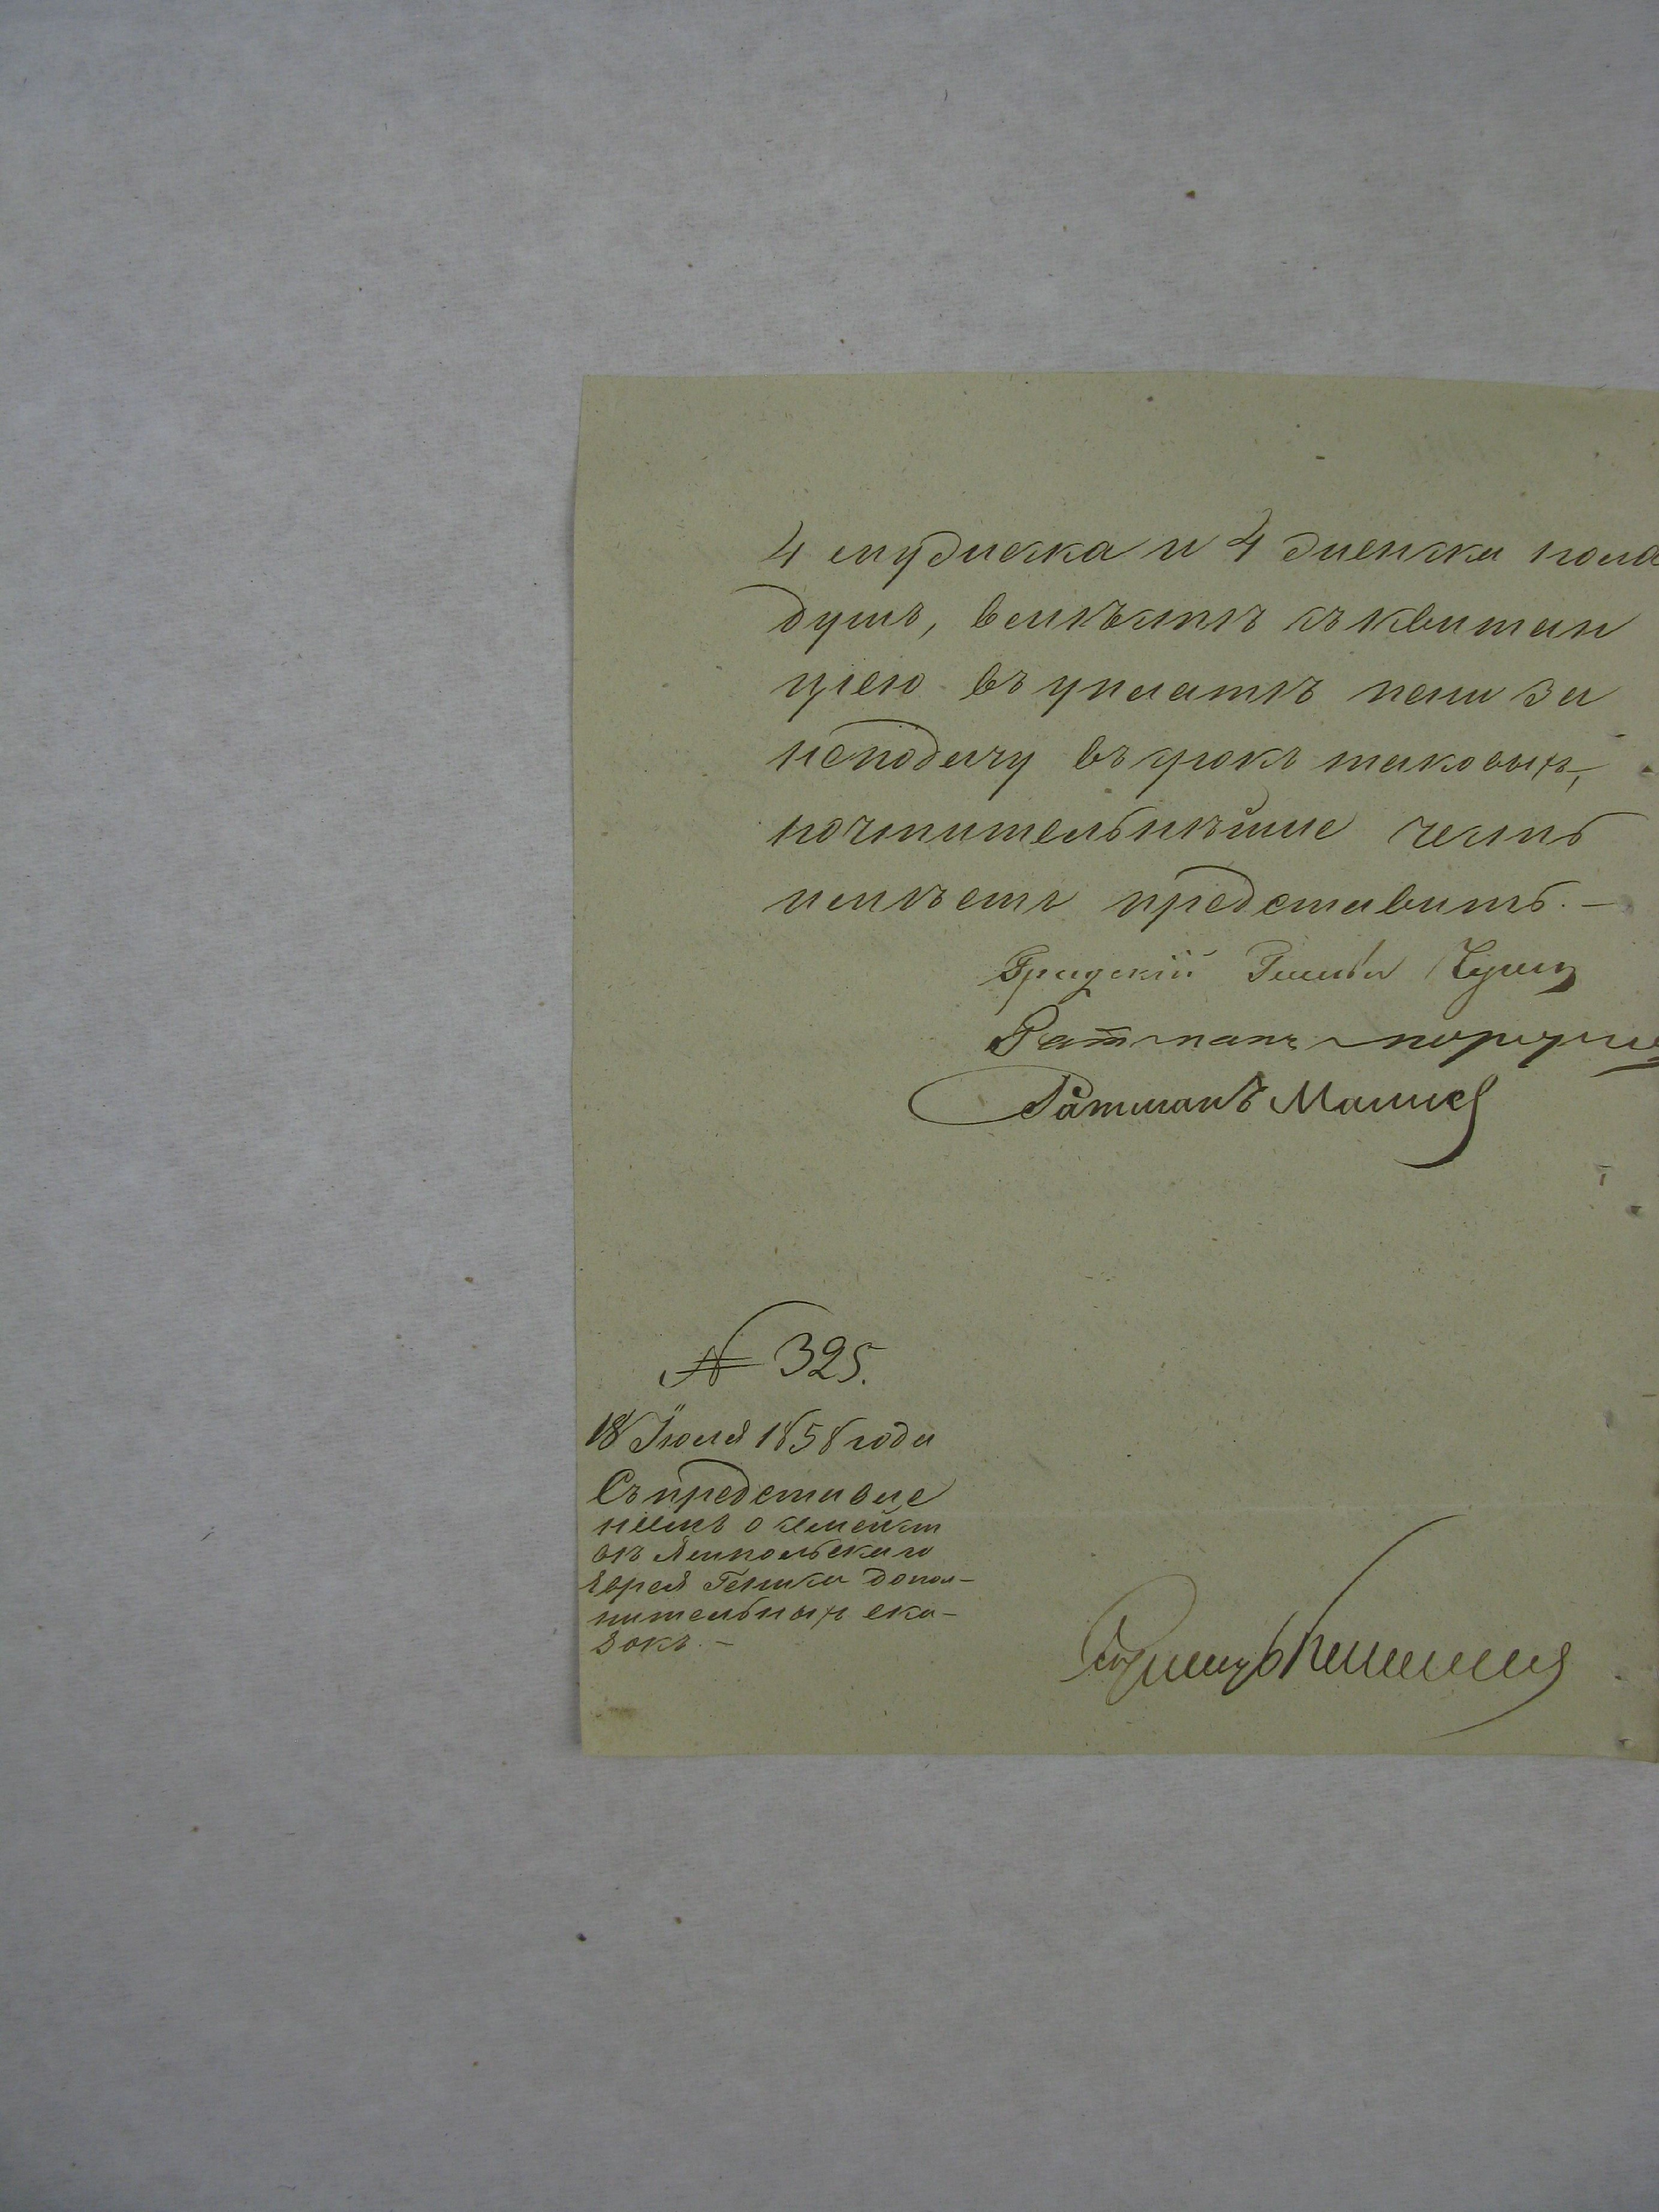 4 мужеска и 4 женска пола
душъ, вмѣстѣ съ квитан
цiею въ уплатѣ пени за
неподачу въ срокъ таковыхъ,
почтительнѣйше честь
имѣетъ представить. —
Градскiй Глава
Ратманъ
Ратманъ
№ 325.
18 Iюля 1858 года
Съ представле
нiемъ о семейст
вѣ Ямпольскаго
Еврея допол–
нительныхъ ска–
зокъ. —